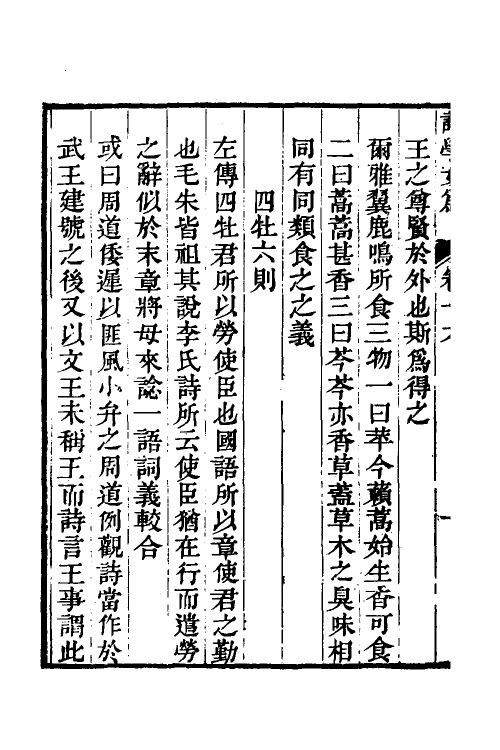 王之尊賢於外也斯爲得之
爾雅翼鹿鳴所食三物一曰苹今藾蒿始生香可食
二曰蒿蒿甚香三曰芩芩亦香草蓋草木之臭味相
同有同類食之之義
四牡六則
左傳四牡君所以勞使臣也國語所以章使君之勤
也毛朱皆祖其說李氏詩所云使臣猶在行而遣勞
之辭似於末章將母來諗一語詞義較合
或曰周道倭遲以匪風小弁之周道例觀詩當作於
武王建號之後又以文王未稱王而詩言王事謂此